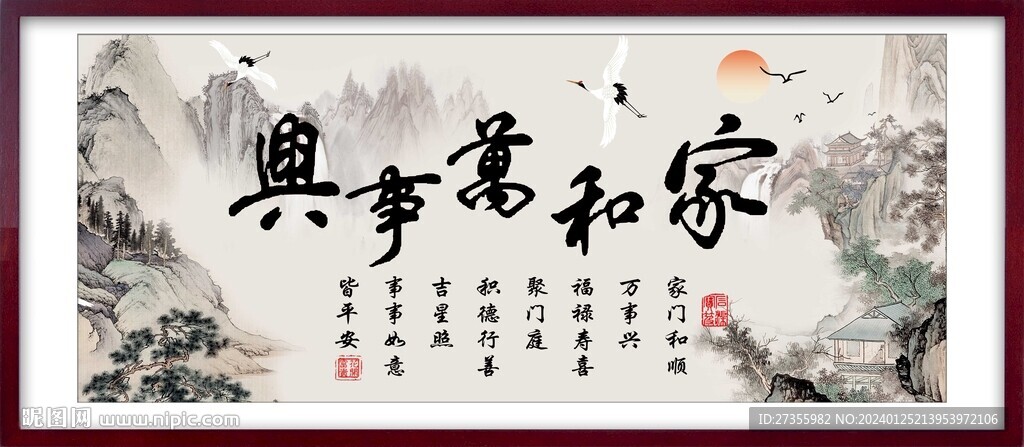 家和萬事興
家门和顺
万事兴
福禄寿喜
聚门庭
积德行善
吉星照
事事如意
皆平安
昵图网 www.nipic.com
ID:27355982 NO:20240125213953972106